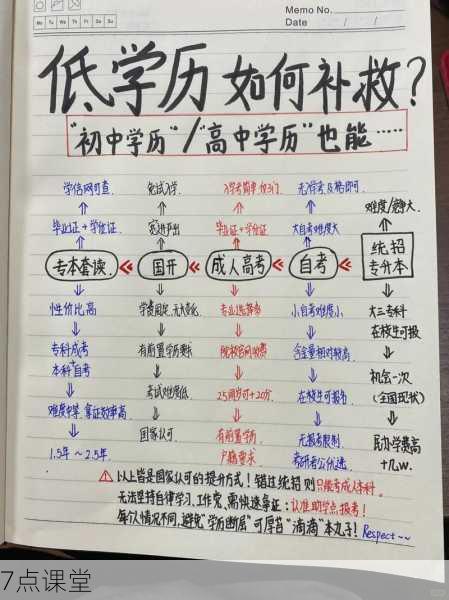 Memo No.
Mo Tu We Th Fr Sa Su
Date / /
低学历如何补救?
"初中学历"/"高中学历"也能……
学信网可查
免试入学
入学考简单·仅3门
无需考 & 够即可
难度/竞争大
毕业证+学位证
宽进严出
毕业证+学位证
大自考难度大
专本套读
国开
成人高考
自考
统招
专升本
性价比高
学费固定,无大变化
专业选择多
小自考难度小
大三专科
在校生可报
专科成考
+
本科自考
有前置学历要求
院校官网缴费
含金量相对较高
机会一次
(全国现状)
难度中等,拿证效率高
考试难度低
25周岁可+20分
在校生可报考
1.5年~2.5年
国家认可
有前置学历
户籍要求
无报考限制
考研考公优选
民办学费高
+几w.
以上皆是国家认可的提升方式!错过统招则只能考成人本科.
无法坚持自律学习、工作党、需快速拿证:认准助学点报考!
每个人情况不同,避免"学历断层"可厚台"滴滴"本丸子! Respect~~
7点课堂